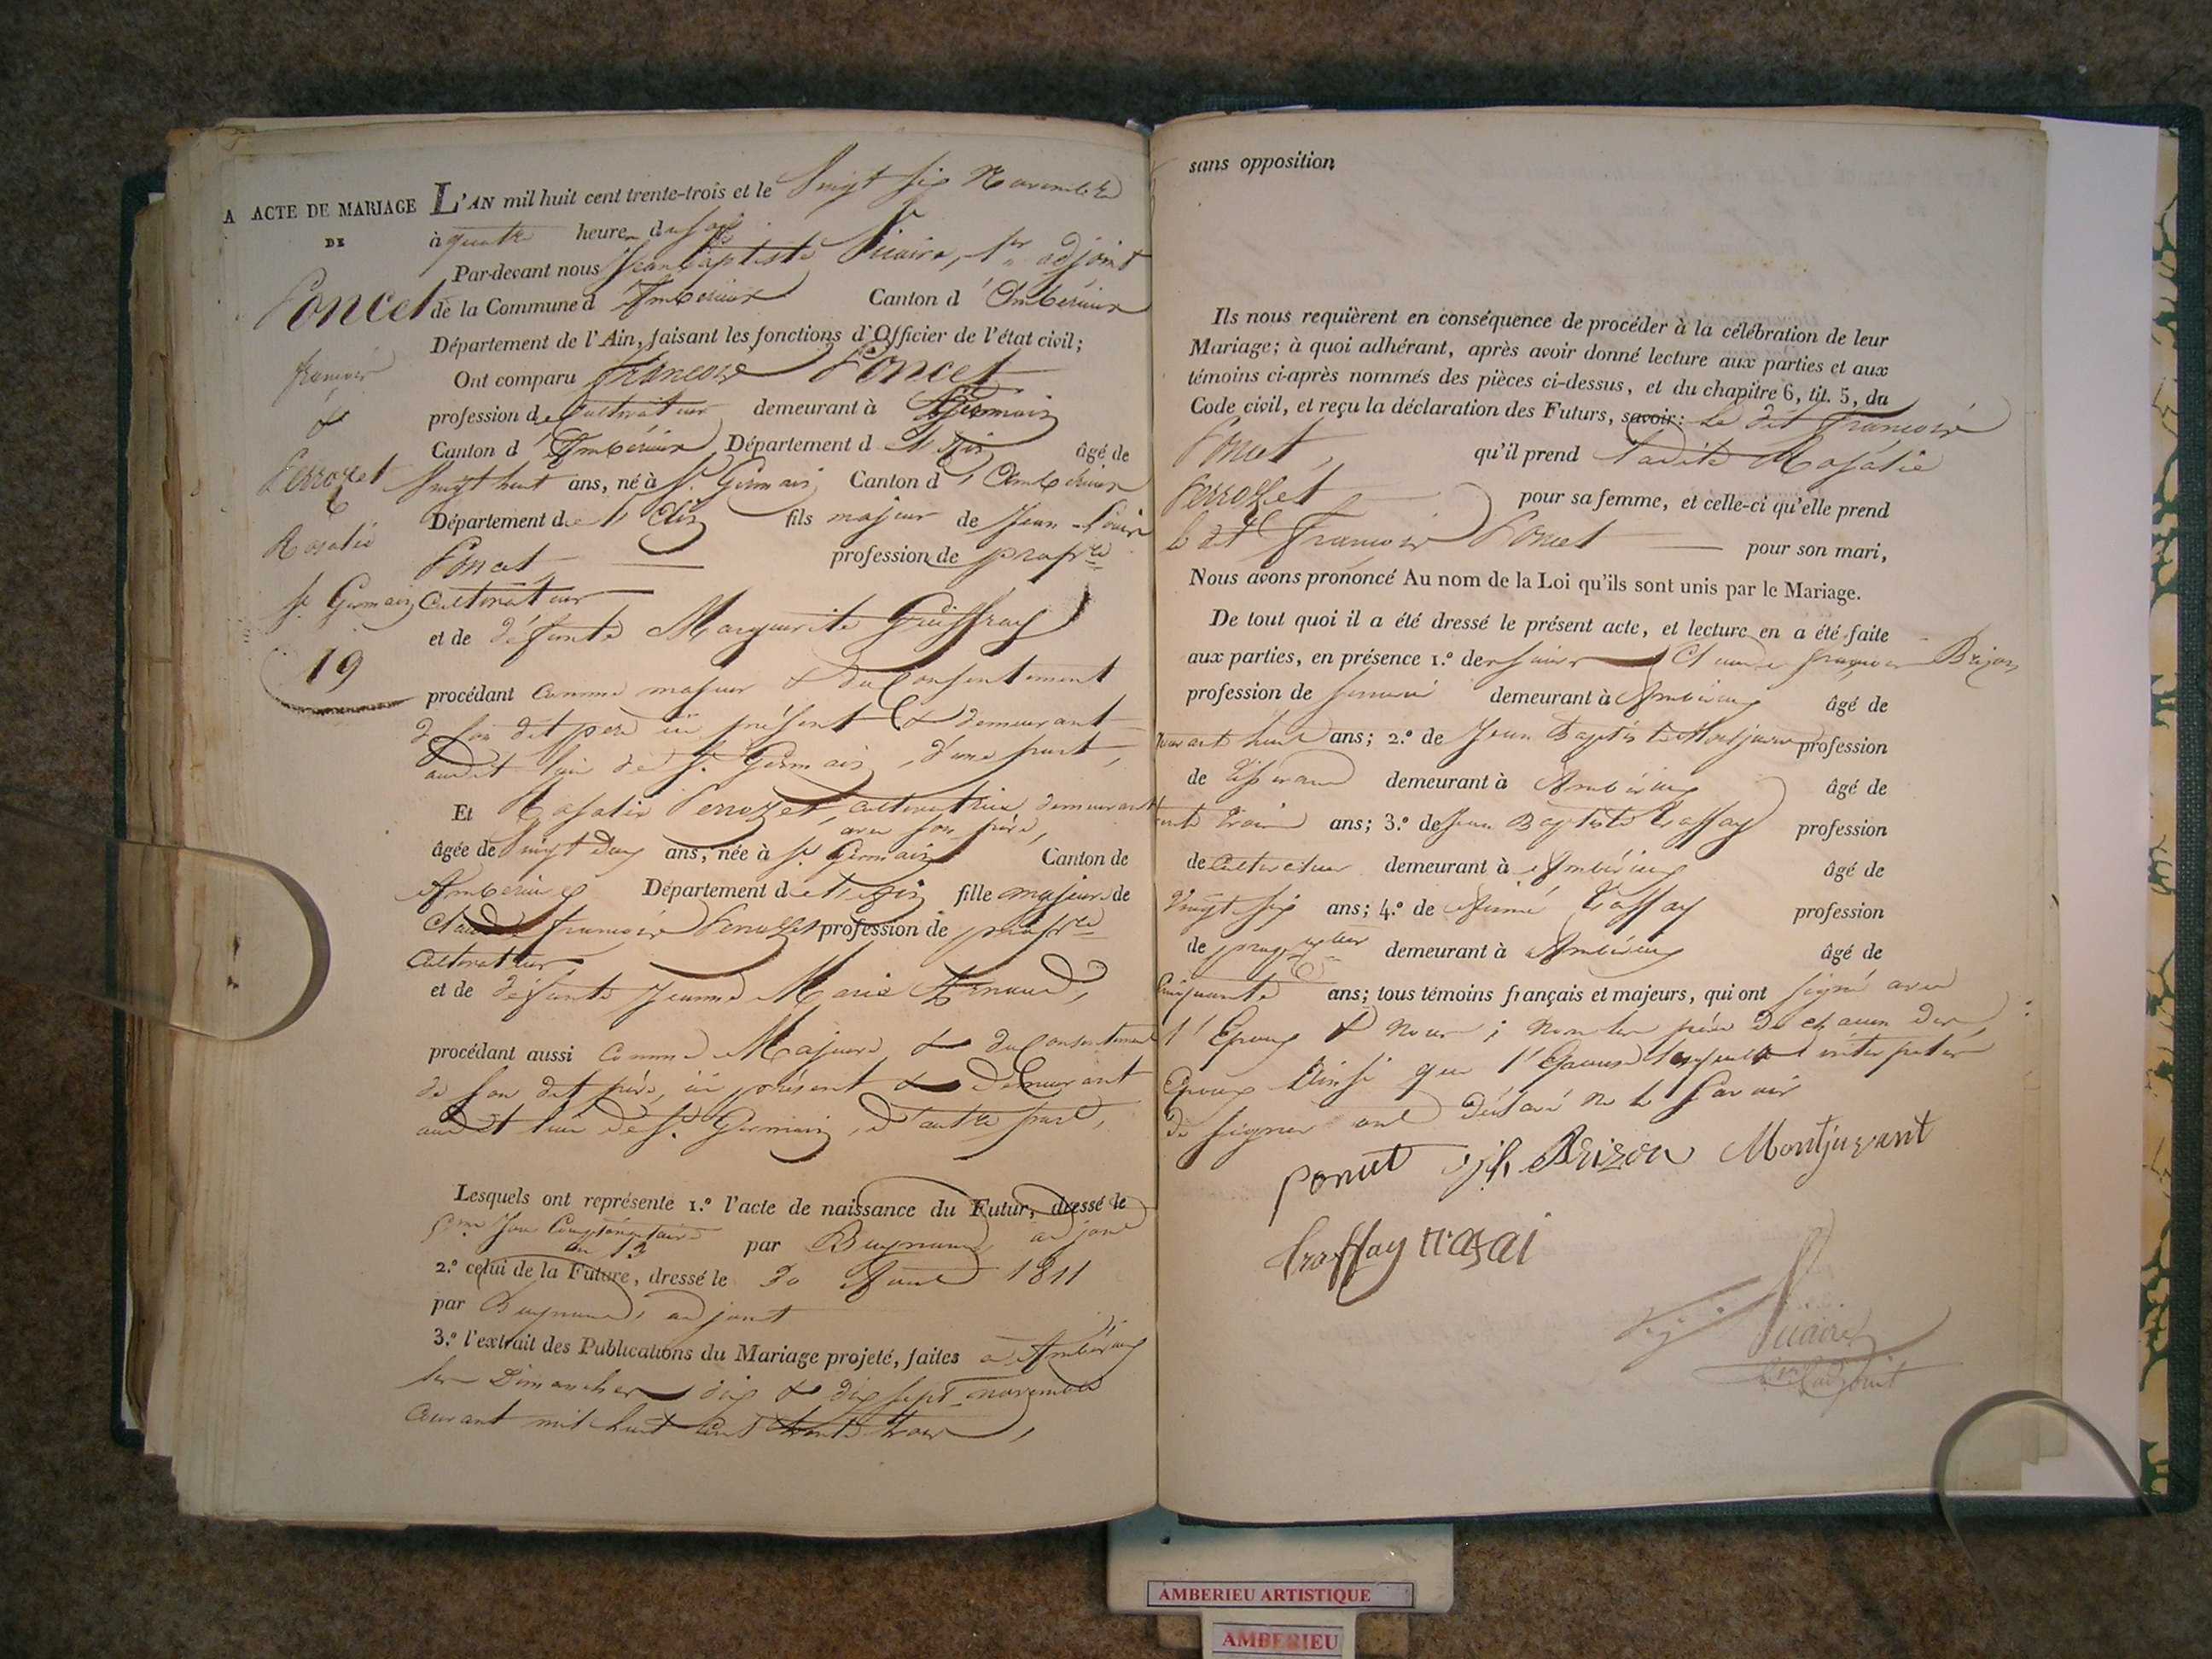 A ACTE DE MARIAGE
DE
Poncet
françois
&
Perrozet
Rosalie
St Germain
19
L'AN mil huit cent trente-trois et le Vingt six Novembre
à quatre heures du soir
Par-devant nous Jean Baptiste Vicaire, 1er adjoint
de la Commune d'Ambérieux Canton d'Ambérieux
Département de l'Ain, faisant les fonctions d'Officier de l'état civil;
Ont comparu françois Poncet
profession de Cultivateur demeurant à St Germain
Canton d'Ambérieux Département de l'Ain âgé de
Vingt huit ans, né à St Germain Canton d'Ambérieux
Département de l'Ain fils majeur de Jean-Louis
Poncet profession de propre
Cultivateur
et de défunte Marguerite Guiffray
procédant comme majeur & du Consentement
de son dit père ici présent & demeurant
audit lieu de St Germain, d'une part,
Et Rosalie Perrozet, cultivatrice, demeurant
avec son père,
âgée de Vingt deux ans, née à St Germain Canton de
Ambérieux Département de l'Ain fille majeure de
Claude françois Perrozet profession de propre
Cultivateur
et de défunte Jeanne Marie Arnaud,
procédant aussi comme Majeure & du Consentement
de son dit père, ici présent & demeurant
audit lieu de St Germain, d'autre part,
Lesquels ont représenté 1.º l'acte de naissance du Futur, dressé le
jour Complémentaire
an 13 par adjoint
2.º celui de la Future, dressé le 30 1811
par adjoint
3.º l'extrait des Publications du Mariage projeté, faites à Ambérieux
les Dimanches dix & dix sept novembre
courant mil huit cent trente trois,
sans opposition
Ils nous requièrent en conséquence de procéder à la célébration de leur
Mariage; à quoi adhérant, après avoir donné lecture aux parties et aux
témoins ci-après nommés des pièces ci-dessus, et du chapitre 6, tit. 5, du
Code civil, et reçu la déclaration des Futurs, savoir: Le dit françois
Poncet, qu'il prend ladite Rosalie
Perrozet pour sa femme, et celle-ci qu'elle prend
le dit françois Poncet pour son mari,
Nous avons prononcé Au nom de la Loi qu'ils sont unis par le Mariage.
De tout quoi il a été dressé le présent acte, et lecture en a été faite
aux parties, en présence 1.º de Claude françois Brizon
profession de demeurant à Ambérieux âgé de
ans; 2.º de Jean Baptiste Montjuvent profession
de Tisserand demeurant à Ambérieux âgé de
trente trois ans; 3.º de Jean Baptiste Traffay profession
de Cultivateur demeurant à Ambérieux âgé de
Vingt six ans; 4.º de Aimé Traffay profession
de demeurant à Ambérieux âgé de
Cinquante ans; tous témoins français et majeurs, qui ont signé avec
l'Epoux & nous; non les pères de chacun des
Epoux Ainsi que l'Epouse lesquels interpelés
de signer ont déclaré ne le savoir
ponset Brizon Montjuvent
traffay
Vicaire
1er adjoint
AMBERIEU ARTISTIQUE
AMBERIEU